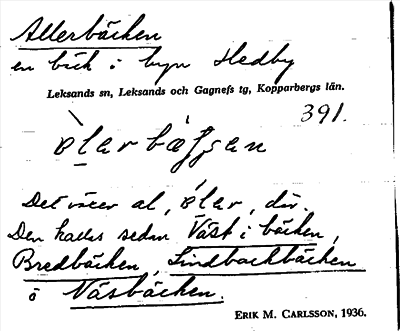 Allerbäcken
en bäck i byn Hedby
Leksands sn, Leksands och Gagnefs tg, Kopparbergs län.
391.
Det växer al, ə́lar, där.
Den kallas sedan Väst i bäcken,
Bredbäcken, Lindbackbäcken
o Näsbäcken.
ERIK M. CARLSSON, 1936.